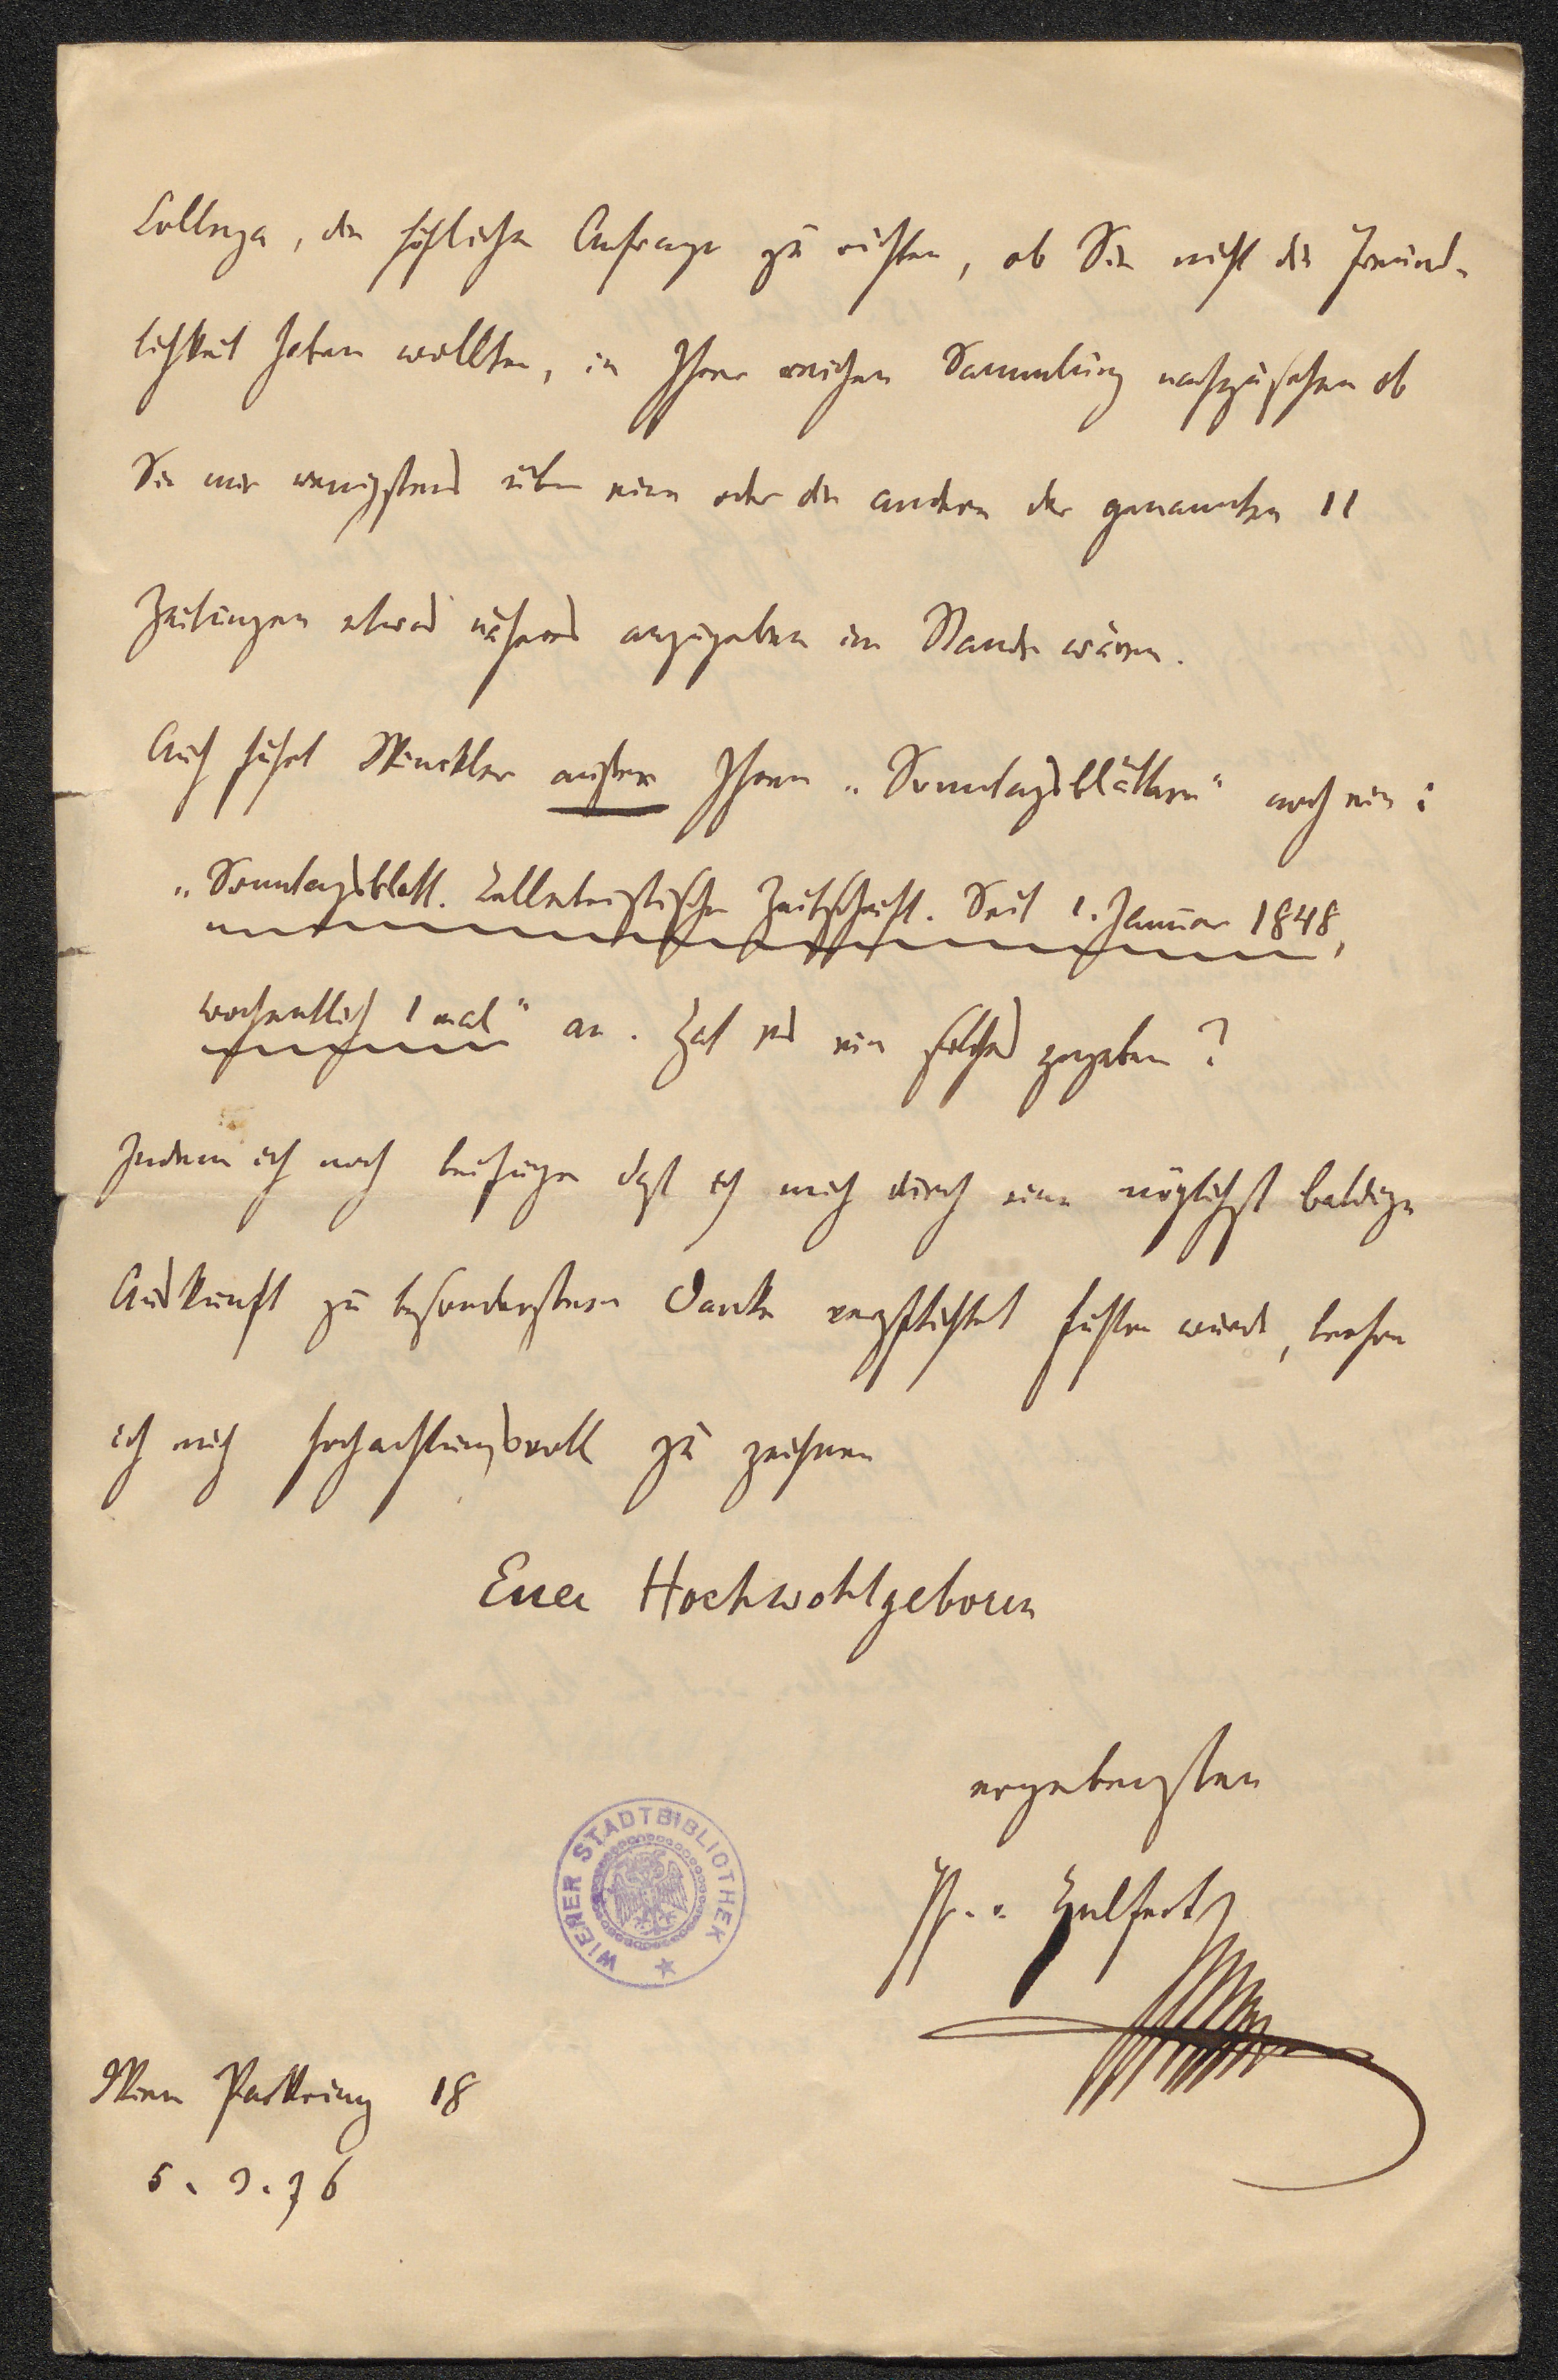 Collega, die höfliche Anfrage zu richten, ob Sie nicht die Freund-
lichkeit haben wollten, in Ihrer reichen Sammlung nachzusehen ob
Sie mir wenigstens über eine oder die andere der genannten 11
Zeitungen etwas näheres anzugeben im Stande wären.
Auch führt Winckler außer Ihren „Sonntagsblättern" noch ein:
„Sonntagsblatt. Belletristische Zeitschrift. Seit 1. Januar 1848,
wochentlich 1 mal" an. Hat es ein solches gegeben?
Indem ich noch beifüge daß ich mich durch eine möglichst baldige
Auskunft zu besonderstem Danke verpflichtet fühlen würde, beehre
ich mich hochachtungsvoll zu zeichnen
Euer Hochwohlgeboren
ergebensten
Fr. v. Helfert
WIENER STADTBIBLIOTHEK
Wien Parkring 18
5. 9. 76